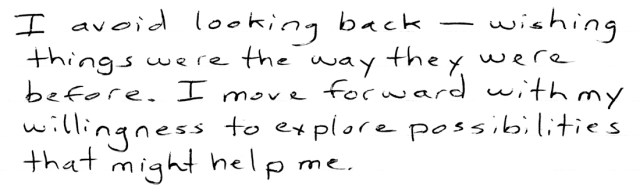 I avoid looking back — wishing
things were the way they were
before. I move forward with my
willingness to explore possibilities
that might help me.